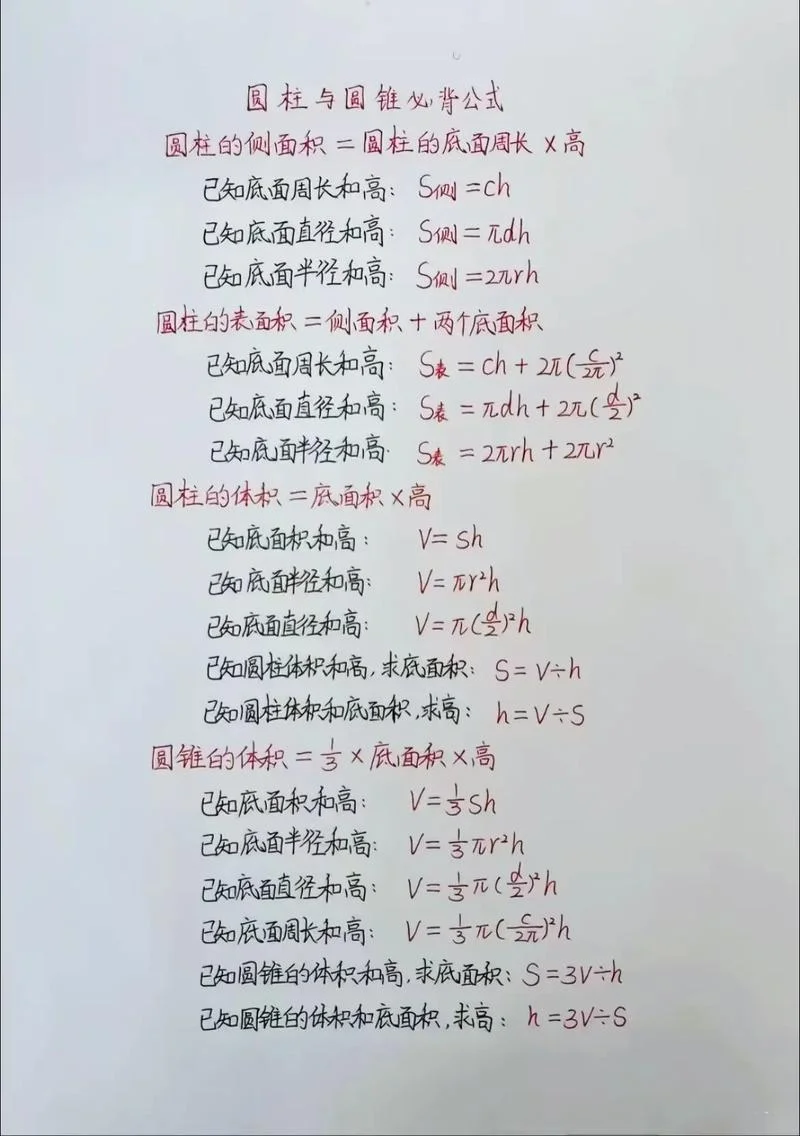 圆柱与圆锥必背公式
圆柱的侧面积=圆柱的底面周长×高
已知底面周长和高: S侧=ch
已知底面直径和高: S侧=πdh
已知底面半径和高: S侧=2πrh
圆柱的表面积=侧面积+两个底面积
已知底面周长和高: S表=ch+2π(c/2π)²
已知底面直径和高: S表=πdh+2π(d/2)²
已知底面半径和高: S表=2πrh+2πr²
圆柱的体积=底面积×高
已知底面积和高: V=sh
已知底面半径和高: V=πr²h
已知底面直径和高: V=π(d/2)²h
已知圆柱体积和高,求底面积: S=V÷h
已知圆柱体积和底面积,求高: h=V÷S
圆锥的体积=1/3×底面积×高
已知底面积和高: V=1/3sh
已知底面半径和高: V=1/3πr²h
已知底面直径和高: V=1/3π(d/2)²h
已知底面周长和高: V=1/3π(c/2π)²h
已知圆锥的体积和高,求底面积: S=3V÷h
已知圆锥的体积和底面积,求高: h=3V÷S